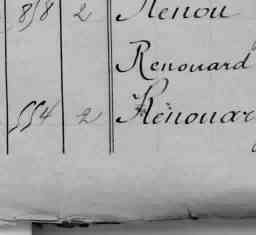 858 2 Renou
Renouard
554 2 Rénouar